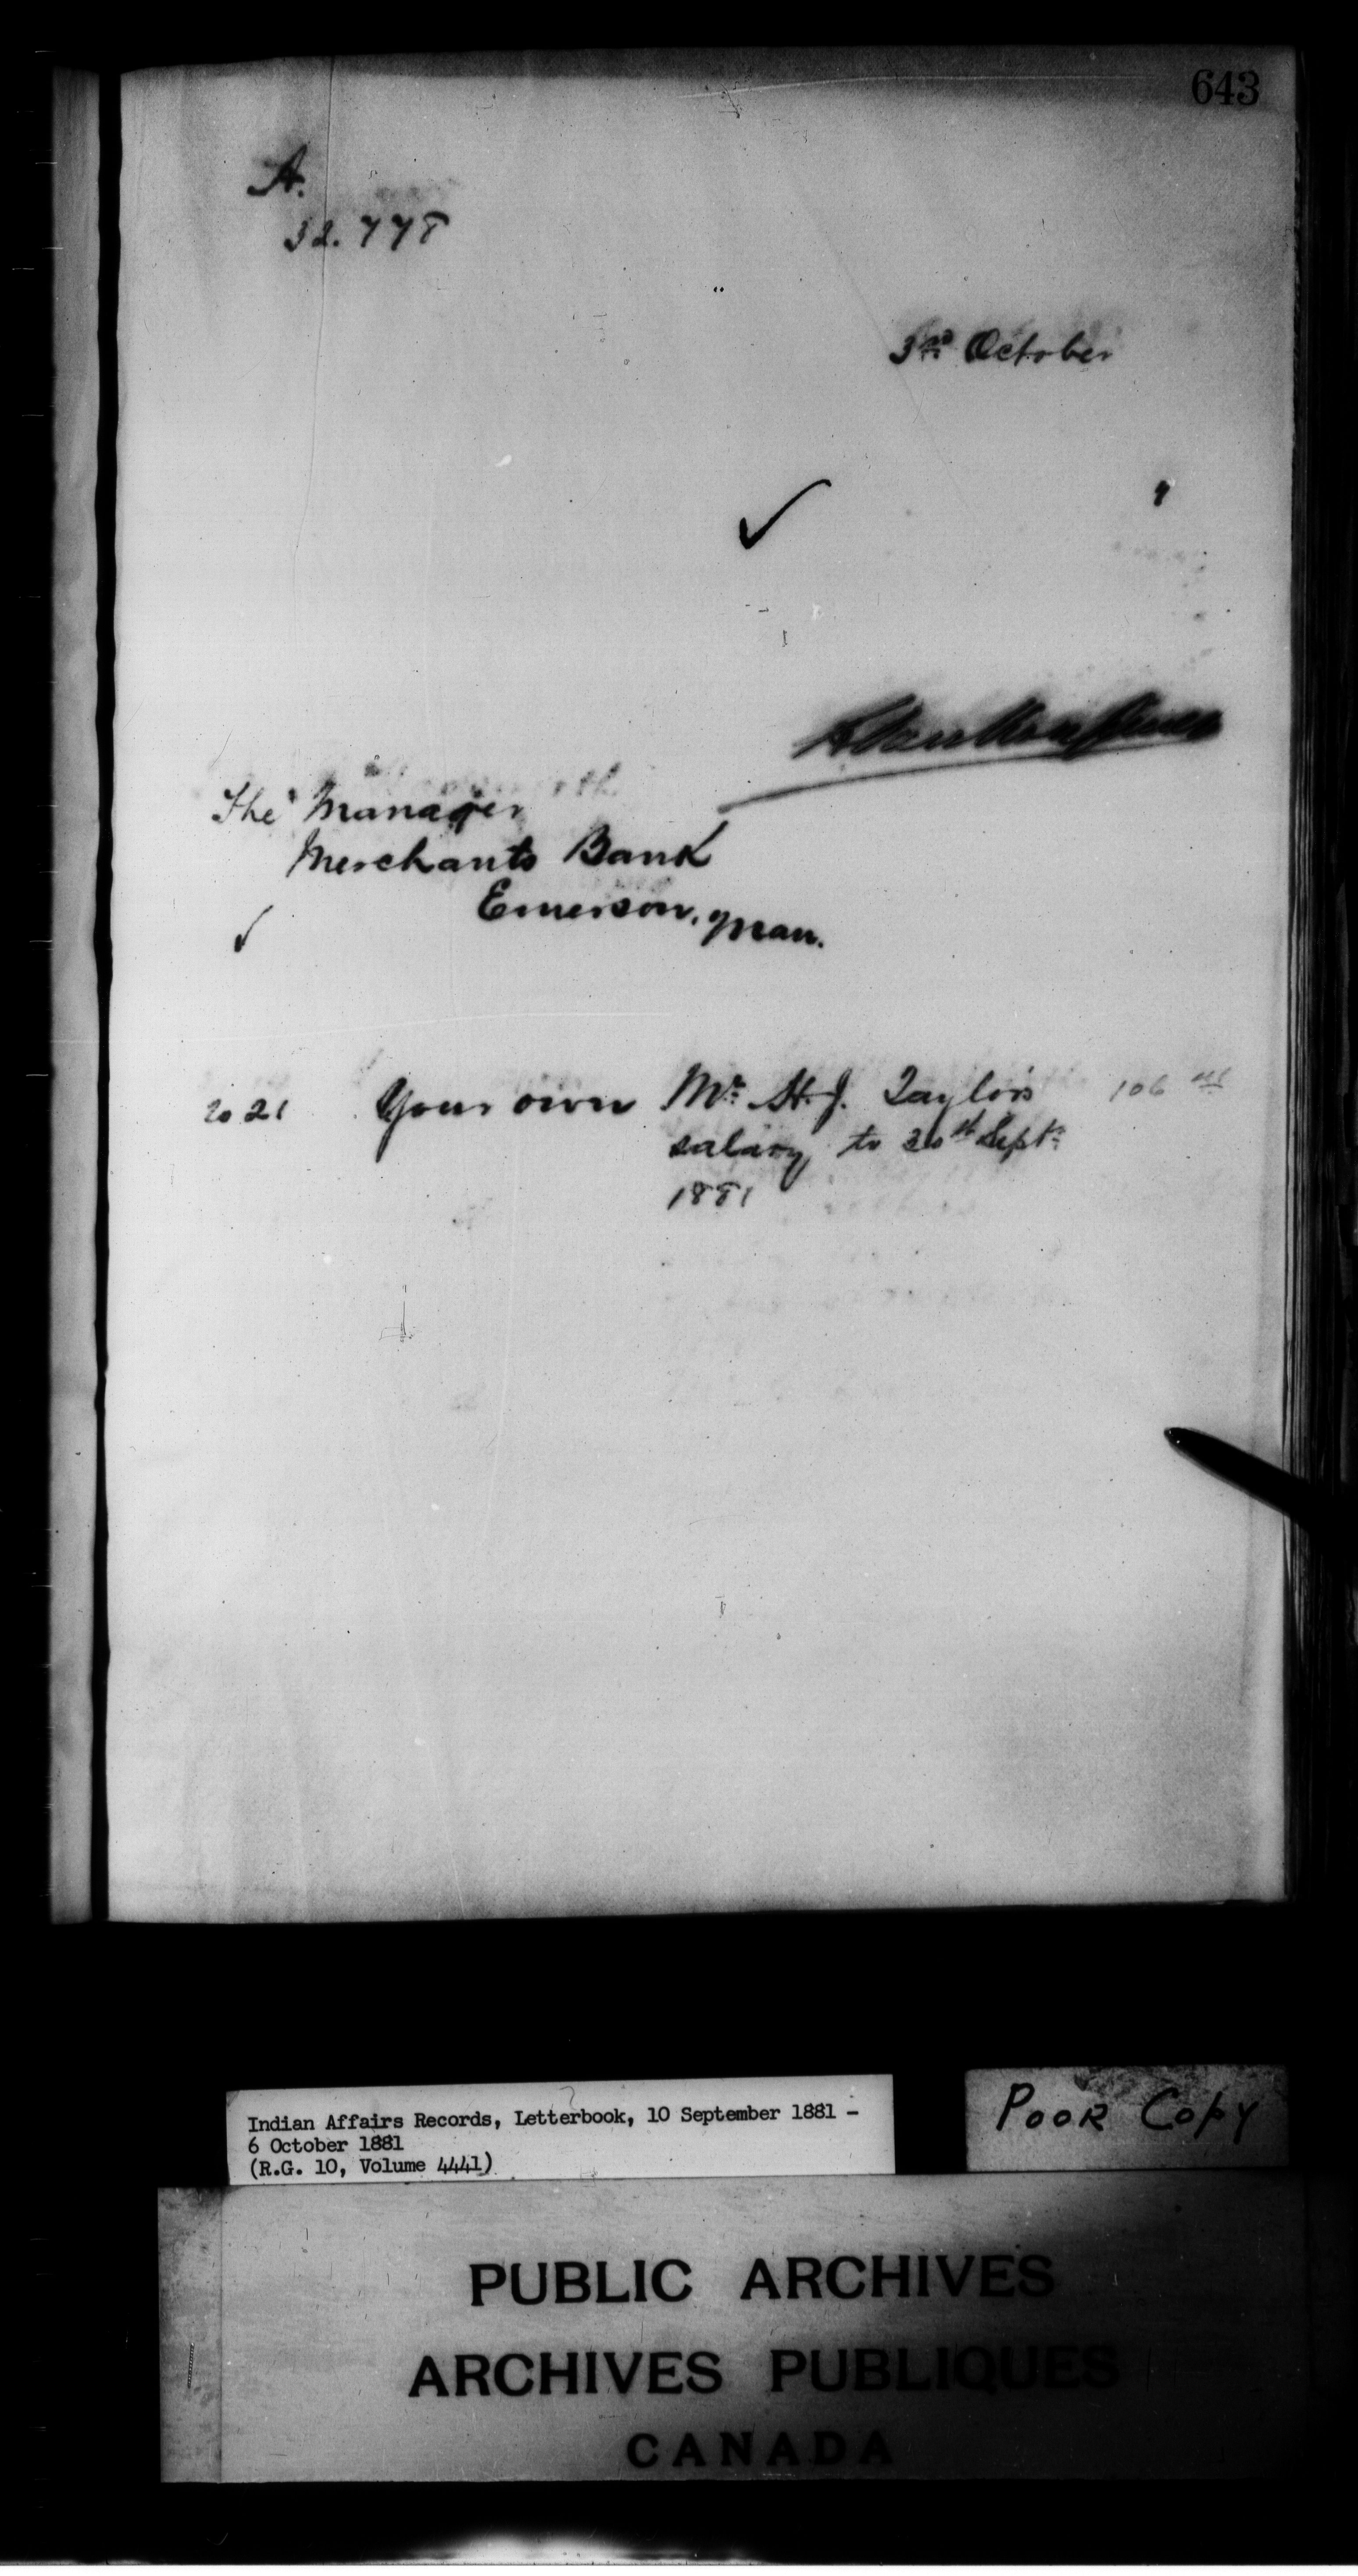 643
A.
32.778
3rd October
The Manager
Merchants Bank
Emerson, Man.
2021 Your own Mr. H. J. Taylor's 106
salary to 30th Sept.
1881
Indian Affairs Records, Letterbook, 10 September 1881 –
6 October 1881
(R.G. 10, Volume 4441)
POOR COPY
PUBLIC ARCHIVES
ARCHIVES PUBLIQUES
CANADA